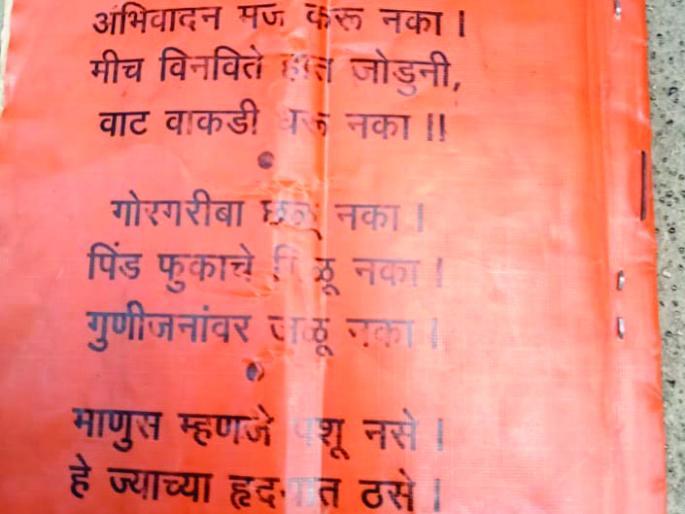 अभिवादन मज करू नका ।
मीच विनविते हात जोडुनी,
वाट वाकडी धरू नका ॥
गोरगरीबा छळू नका ।
पिंड फुकाचे गिळू नका ।
गुणीजनांवर जळू नका ।
माणुस म्हणजे पशू नसे ।
हे ज्याच्या हृदयात ठसे ।